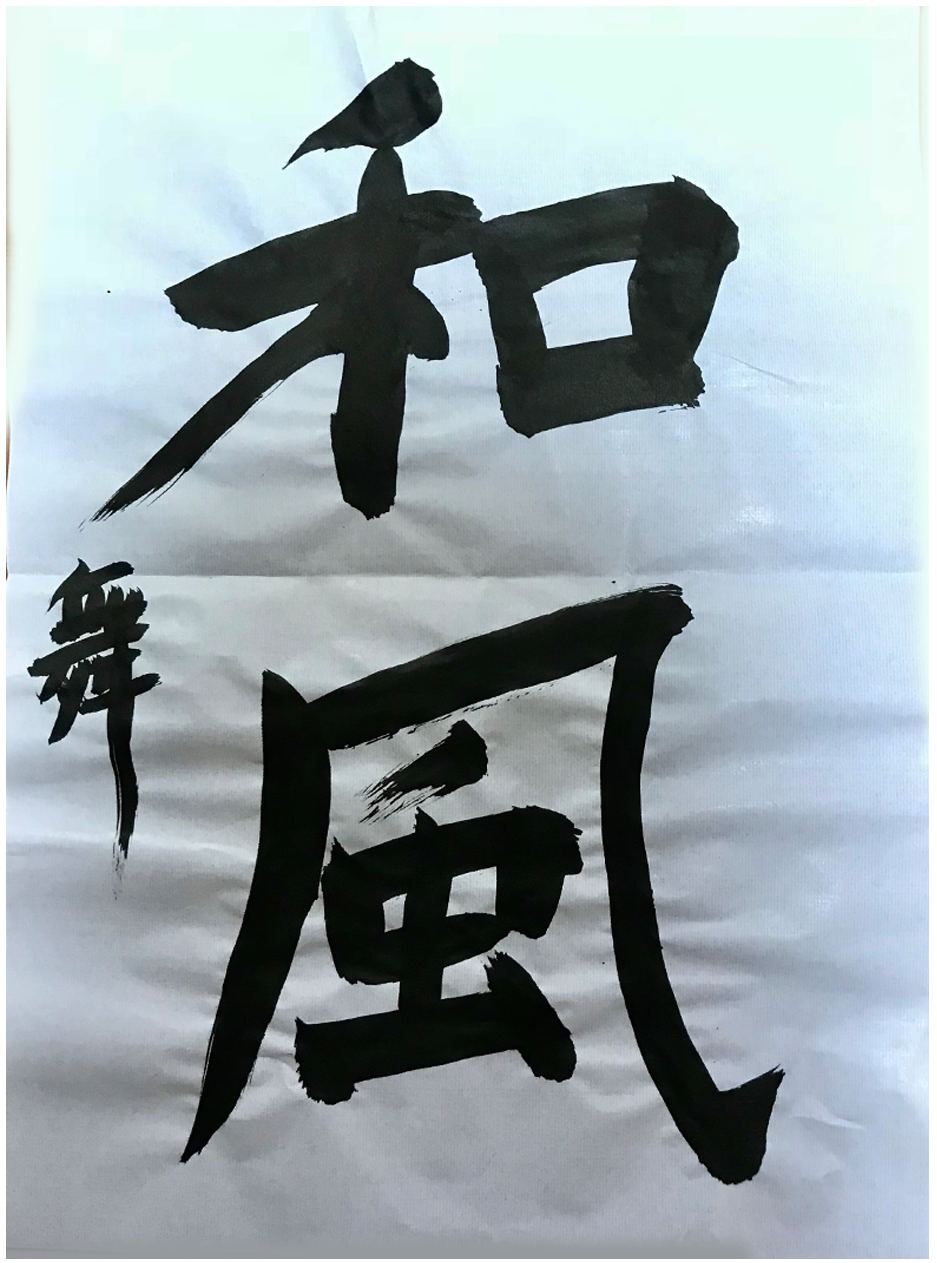 和風
舞